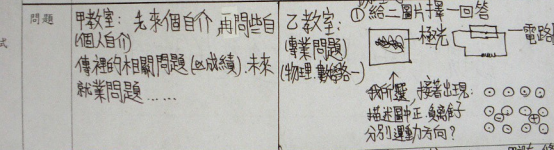 式
問題
甲教室：先來個自介 再問些自
(個人自介)
傳裡的相關問題(ex成績).未來
就業問題……
乙教室：
(專業問題)
(物理.數學路一)
①給二圖片擇一回答
極光
電路
我所選,接著出現：
描述圖中正.負離子
分別運動方向？